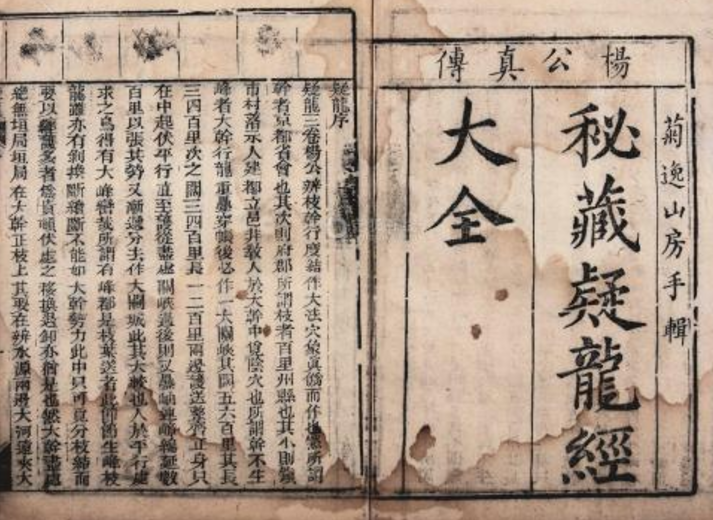 楊公真傳
菊逸山房手輯
秘藏疑龍經
大全
疑龍序
疑龍三卷楊公辨枝幹行度結作大法穴象真僞而作也
幹者京都省會也其次則府郡所謂枝者百里州縣也其小則鎮
市村落示人建都立邑非教人於大幹中覓陰穴也所謂幹不生
峰者大幹行龍重疊穿帳後必作一大關峽其闊五六百里其長
三四百里次之闊三四百里長一二百里兩邊護送整齊立身只
在中起伏平行直至關峽過後則又疊峰連綿延數
百里以張其勢又漸分去作大關城此其大較也人於平行處
求之烏得有大峰巒哉所謂有峰都是枝葉送者此節節生峰枝
龍雖亦有剝換斷續斷不能如大幹勢力此中只可覓分枝而
要以多者為貴頓伏處之移換退卸亦猶是也大幹
總無垣局垣局在大幹正枝上其要在辨水源兩邊大河遠夾大